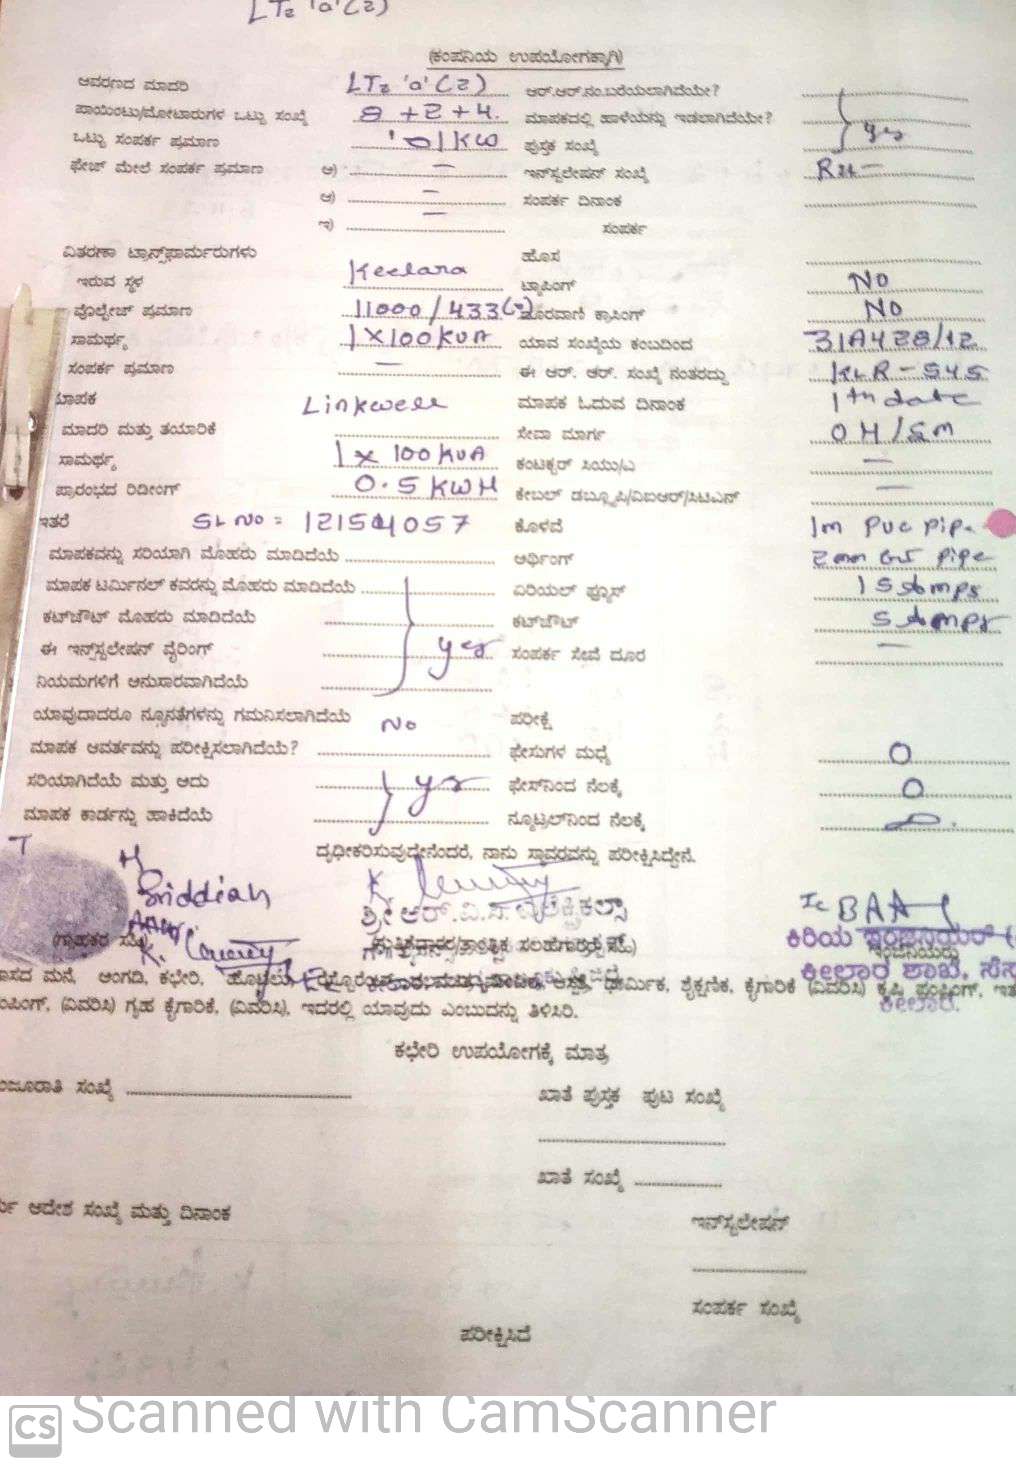 LT2 'a'(2)
(ಕಂಪನಿಯ ಉಪಯೋಗಕ್ಕಾಗಿ)
ಆವರಣದ ಮಾದರಿ LT2 'a'(2) ಆರ್.ಆರ್.ನಂ.ಬರೆಯಲಾಗಿದೆಯೇ?
ಪಾಯಿಂಟು/ಮೋಟಾರುಗಳ ಒಟ್ಟು ಸಂಖ್ಯೆ 8+2+4. ಮಾಪಕದಲ್ಲಿ ಹಾಳೆಯನ್ನು ಇಡಲಾಗಿದೆಯೇ? yes
ಒಟ್ಟು ಸಂಪರ್ಕ ಪ್ರಮಾಣ 01KW ಪುಸ್ತಕ ಸಂಖ್ಯೆ
ಫೇಜ್ ಮೇಲೆ ಸಂಪರ್ಕ ಪ್ರಮಾಣ ಅ) – ಇನ್‌ಸ್ಟಲೇಷನ್ ಸಂಖ್ಯೆ
ಆ) – ಸಂಪರ್ಕ ದಿನಾಂಕ
ಇ) – ಸಂಪರ್ಕ
ವಿತರಣಾ ಟ್ರಾನ್ಸ್‌ಫಾರ್ಮರುಗಳು ಹೊಸ
ಇರುವ ಸ್ಥಳ Keelara ಟ್ಯಾಪಿಂಗ್ NO
ವೊಲ್ಟೇಜ್ ಪ್ರಮಾಣ 11000/433 ದೂರವಾಣಿ ಕ್ರಾಸಿಂಗ್ NO
ಸಾಮರ್ಥ್ಯ 1X100KVA ಯಾವ ಸಂಖ್ಯೆಯ ಕಂಬದಿಂದ 31A428/12
ಸಂಪರ್ಕ ಪ್ರಮಾಣ – ಈ ಆರ್. ಆರ್. ಸಂಖ್ಯೆ ನಂತರದ್ದು KLR-545
ಮಾಪಕ Linkwell ಮಾಪಕ ಓದುವ ದಿನಾಂಕ 1th date
ಮಾದರಿ ಮತ್ತು ತಯಾರಿಕೆ ಸೇವಾ ಮಾರ್ಗ OH/SM
ಸಾಮರ್ಥ್ಯ 1x100KVA ಕಂಟಕ್ಟರ್ ಸಿಯು/ಎ –
ಪ್ರಾರಂಭದ ರಿಡೀಂಗ್ 0.5KWH ಕೇಬಲ್ ಡಬ್ಲ್ಯೂಪಿ/ವಿಐಆರ್/ಸಿಟಿಎಸ್ –
ಇತರೆ SL NO: 12154057 ಕೊಳವೆ 1m PVC Pipe
ಮಾಪಕವನ್ನು ಸರಿಯಾಗಿ ಮೊಹರು ಮಾಡಿದೆಯೆ ಅರ್ಥಿಂಗ್ 2mm GI Pipe
ಮಾಪಕ ಟರ್ಮಿನಲ್ ಕವರನ್ನು ಮೊಹರು ಮಾಡಿದೆಯೆ ಏರಿಯಲ್ ಫ್ಯೂಸ್ 15 Amps
ಕಟ್‌ಔಟ್ ಮೊಹರು ಮಾಡಿದೆಯೆ ಕಟ್‌ಔಟ್ 5 Amps
ಈ ಇನ್‌ಸ್ಟಲೇಷನ್ ವೈರಿಂಗ್ yes ಸಂಪರ್ಕ ಸೇವೆ ದೂರ –
ನಿಯಮಗಳಿಗೆ ಅನುಸಾರವಾಗಿದೆಯೆ
ಯಾವುದಾದರೂ ನ್ಯೂನತೆಗಳನ್ನು ಗಮನಿಸಲಾಗಿದೆಯೆ No ಪರೀಕ್ಷೆ
ಮಾಪಕ ಆವರ್ತವನ್ನು ಪರೀಕ್ಷಿಸಲಾಗಿದೆಯೆ? ಫೇಸುಗಳ ಮಧ್ಯೆ 0
ಸರಿಯಾಗಿದೆಯೆ ಮತ್ತು ಅದು yes ಫೇಸ್‌ನಿಂದ ನೆಲಕ್ಕೆ 0
ಮಾಪಕ ಕಾರ್ಡನ್ನು ಹಾಕಿದೆಯೆ ನ್ಯೂಟ್ರಲ್‌ನಿಂದ ನೆಲಕ್ಕೆ 0.
ದೃಢೀಕರಿಸುವುದೇನೆಂದರೆ, ನಾನು ಸ್ಥಾವರವನ್ನು ಪರೀಕ್ಷಿಸಿದ್ದೇನೆ.
Sriddiah
(ಗ್ರಾಹಕರ ಸಹಿ) ಕಿರಿಯ ಇಂಜಿನಿಯರ್
ಕೀಲಾರ ಶಾಖೆ, ಸೆಸ್
ಕೀಲಾರ.
ವಾಸದ ಮನೆ, ಅಂಗಡಿ, ಕಛೇರಿ, ಆಸ್ಪತ್ರೆ, ಧಾರ್ಮಿಕ, ಶೈಕ್ಷಣಿಕ, ಕೈಗಾರಿಕೆ (ವಿವರಿಸಿ) ಕೃಷಿ ಪಂಪಿಂಗ್,
ಪಂಪಿಂಗ್, (ವಿವರಿಸಿ) ಗೃಹ ಕೈಗಾರಿಕೆ, (ವಿವರಿಸಿ), ಇದರಲ್ಲಿ ಯಾವುದು ಎಂಬುದನ್ನು ತಿಳಿಸಿರಿ.
ಕಛೇರಿ ಉಪಯೋಗಕ್ಕೆ ಮಾತ್ರ
ಮಂಜೂರಾತಿ ಸಂಖ್ಯೆ ಖಾತೆ ಪುಸ್ತಕ ಪುಟ ಸಂಖ್ಯೆ
ಖಾತೆ ಸಂಖ್ಯೆ
ಆದೇಶ ಸಂಖ್ಯೆ ಮತ್ತು ದಿನಾಂಕ ಇನ್‌ಸ್ಟಲೇಷನ್
ಸಂಪರ್ಕ ಸಂಖ್ಯೆ
ಪರೀಕ್ಷಿಸಿದೆ
CS Scanned with CamScanner